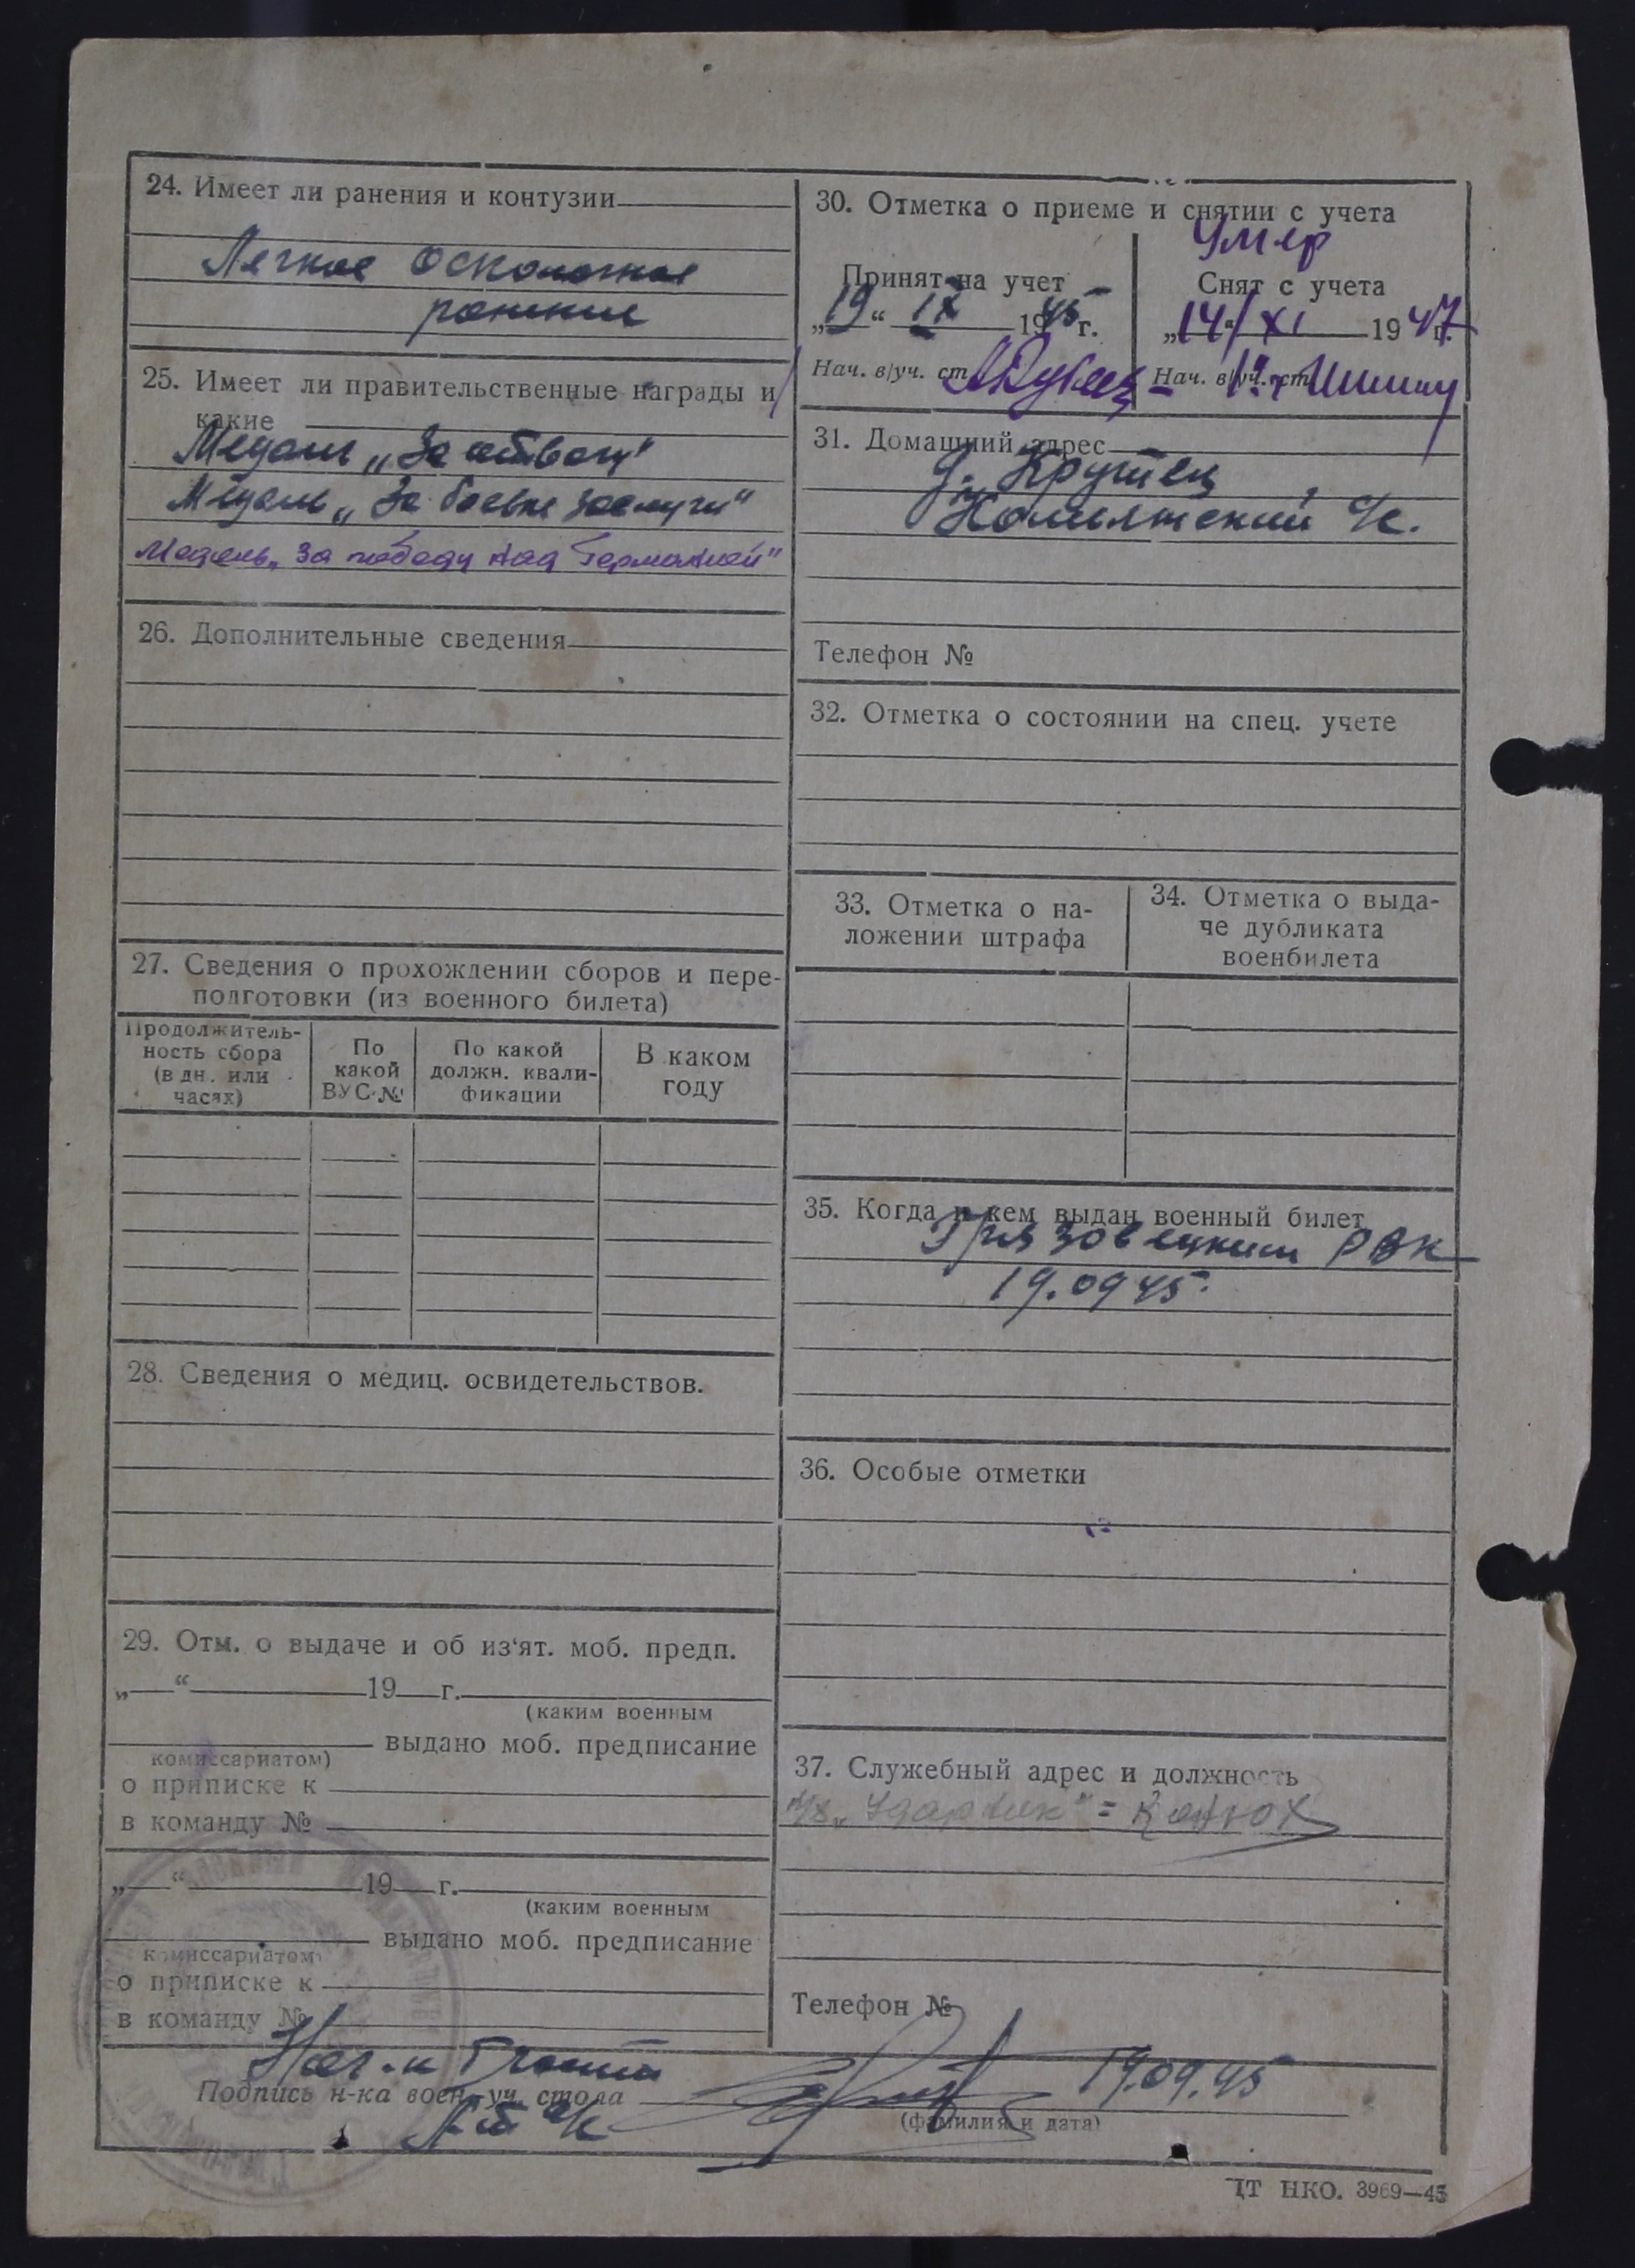 24. Имеет ли ранения и контузии
Легкое осколочное
ранение
25. Имеет ли правительственные награды и
какие
Медаль „За отвагу"
Медаль „За боевые заслуги"
Медаль „За победу над Германией"
26. Дополнительные сведения
27. Сведения о прохождении сборов и пере-
подготовки (из военного билета)
Продолжитель-
ность сбора
(в дн. или
часах)
По
какой
ВУС-№
По какой
должн. квали-
фикации
В каком
году
28. Сведения о медиц. освидетельствов.
29. Отм. о выдаче и об из'ят. моб. предп.
„ “ 19 г.
(каким военным
выдано моб. предписание
комиссариатом)
о приписке к
в команду №
„ “ 19 г.
(каким военным
выдано моб. предписание
комиссариатом)
о приписке к
в команду №
30. Отметка о приеме и снятии с учета
Умер
Принят на учет
„19“ IX 1945 г.
Нач. в/уч. ст.
Снят с учета
„14“ XI 1947 г.
Нач. в/уч. ст.
31. Домашний адрес
д. Крутец
с/с.
Телефон №
32. Отметка о состоянии на спец. учете
33. Отметка о на-
ложении штрафа
34. Отметка о выда-
че дубликата
военбилета
35. Когда и кем выдан военный билет
Грязовецким РВК
19.09 45.
36. Особые отметки
37. Служебный адрес и должность
„Ударник" = Конюх
Телефон №
Подпись н-ка воен.-уч. стола
19.09.45
(фамилия и дата)
ЦТ НКО. 3969—45